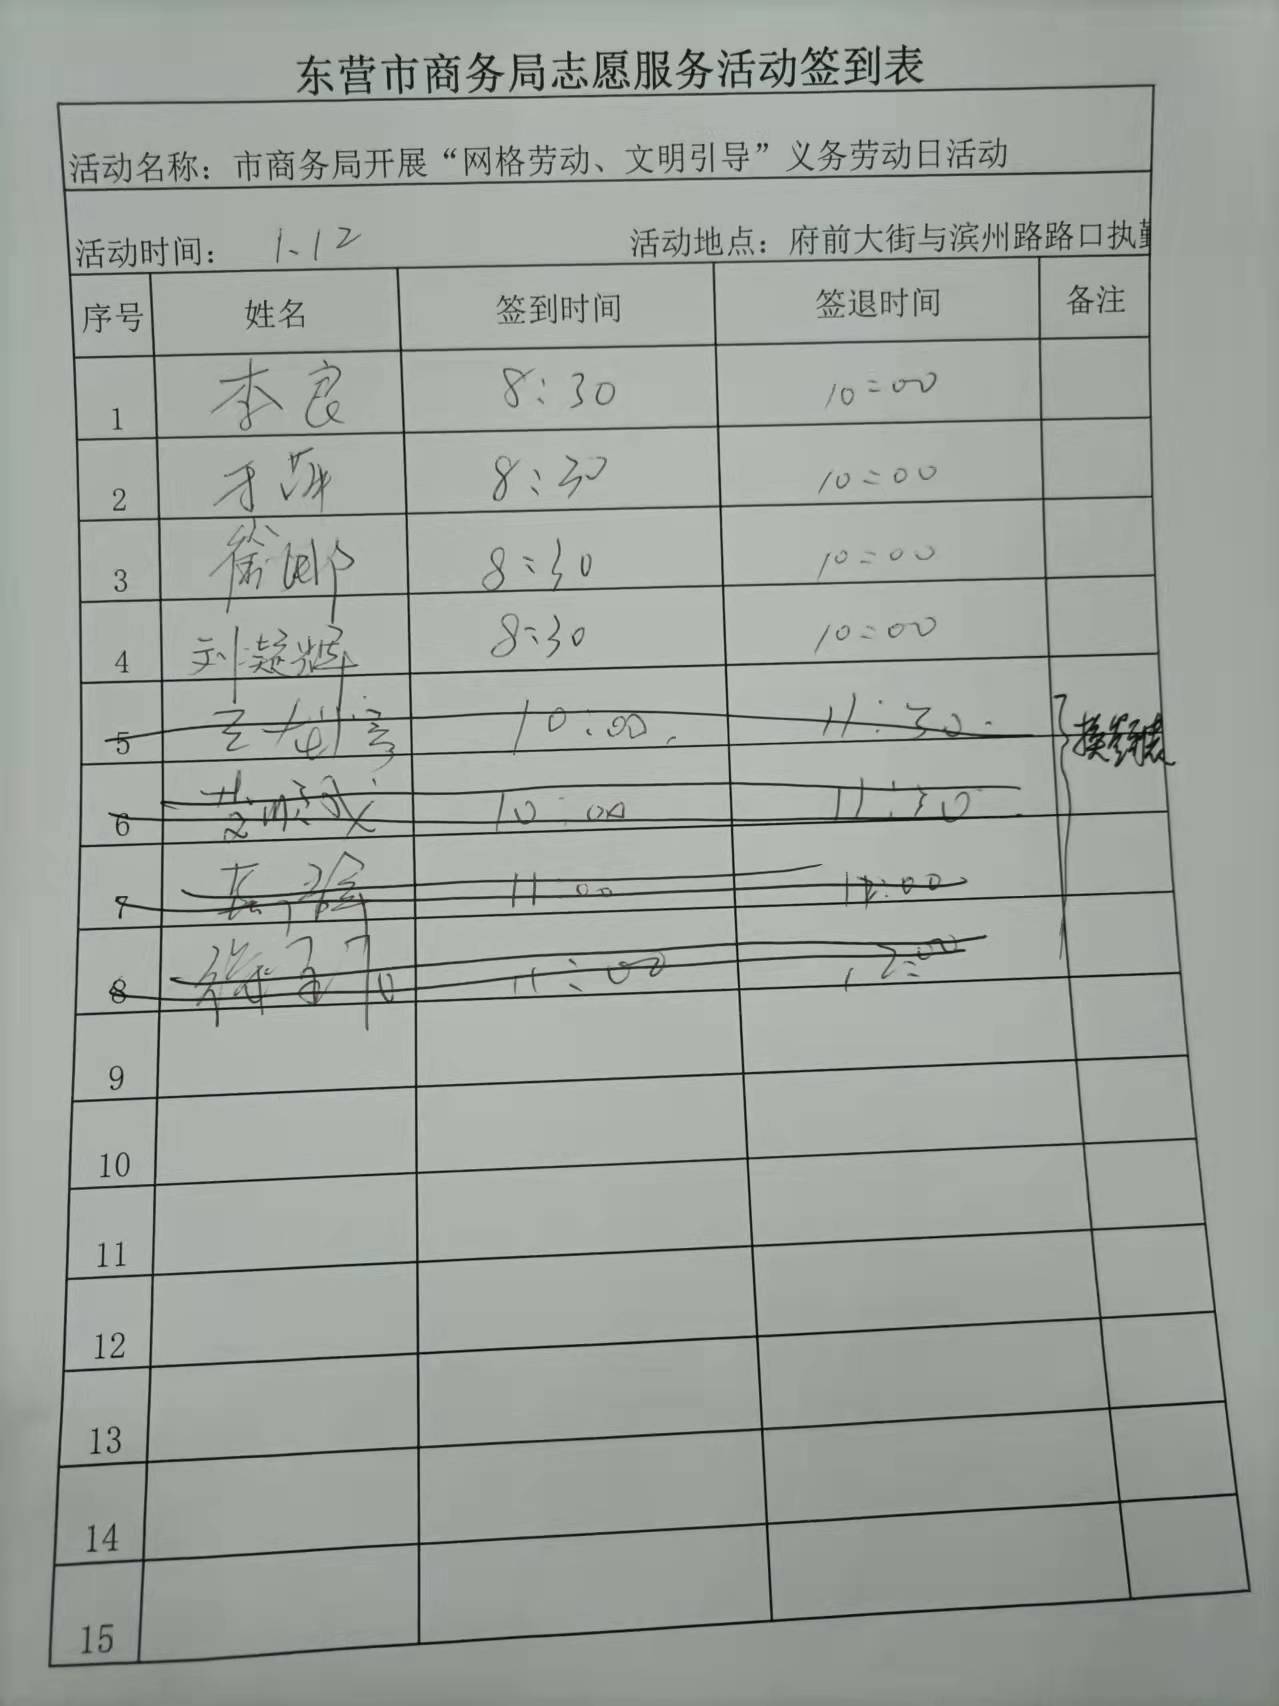 东营市商务局志愿服务活动签到表
活动名称：市商务局开展“网格劳动、文明引导”义务劳动日活动
活动时间： 1.12 活动地点：府前大街与滨州路路口执勤
序号 姓名 签到时间 签退时间 备注
1 李良 8:30 10:00
2 8:30 10:00
3 徐娜 8:30 10:00
4 刘凝辉 8:30 10:00
5 10:00 11:30
6 10:00 11:30
7 11:00 12:00
8 11:00 12:00
9
10
11
12
13
14
15